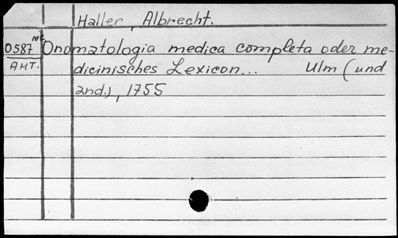 Haller, Albrecht.
0587 Onomatologia medica completa oder me-
AHT. dicinisches Lexicon... Ulm (und
and.), 1755